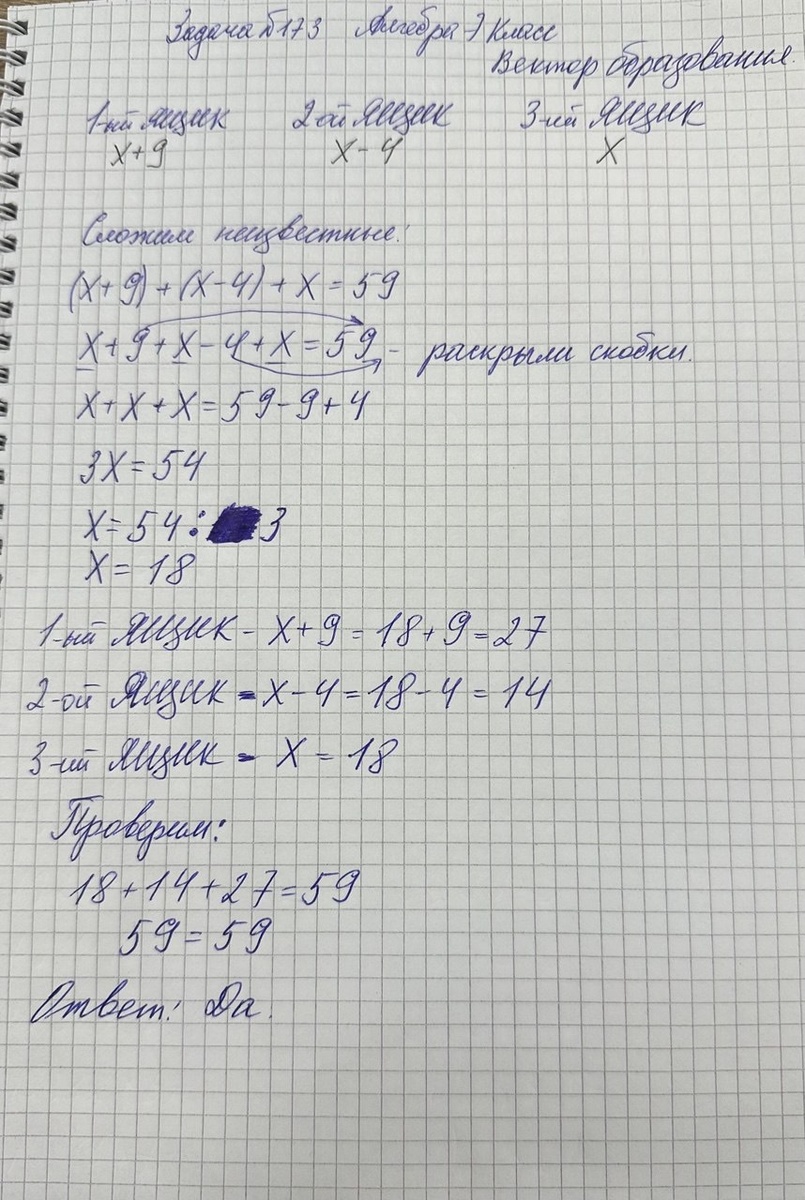 Задача №173 Алгебра 7 класс
Вектор образования.
1-ый ящик 2-ой ящик 3-ий ящик
x+9 x-4 x
Сложим неизвестные:
(x+9)+(x-4)+x=59
x+9+x-4+x=59- раскрыли скобки.
x+x+x=59-9+4
3x=54
x=54:3
x=18
1-ый ящик - x+9=18+9=27
2-ой ящик - x-4=18-4=14
3-ий ящик - x=18
Проверим:
18+14+27=59
59=59
Ответ: Да.